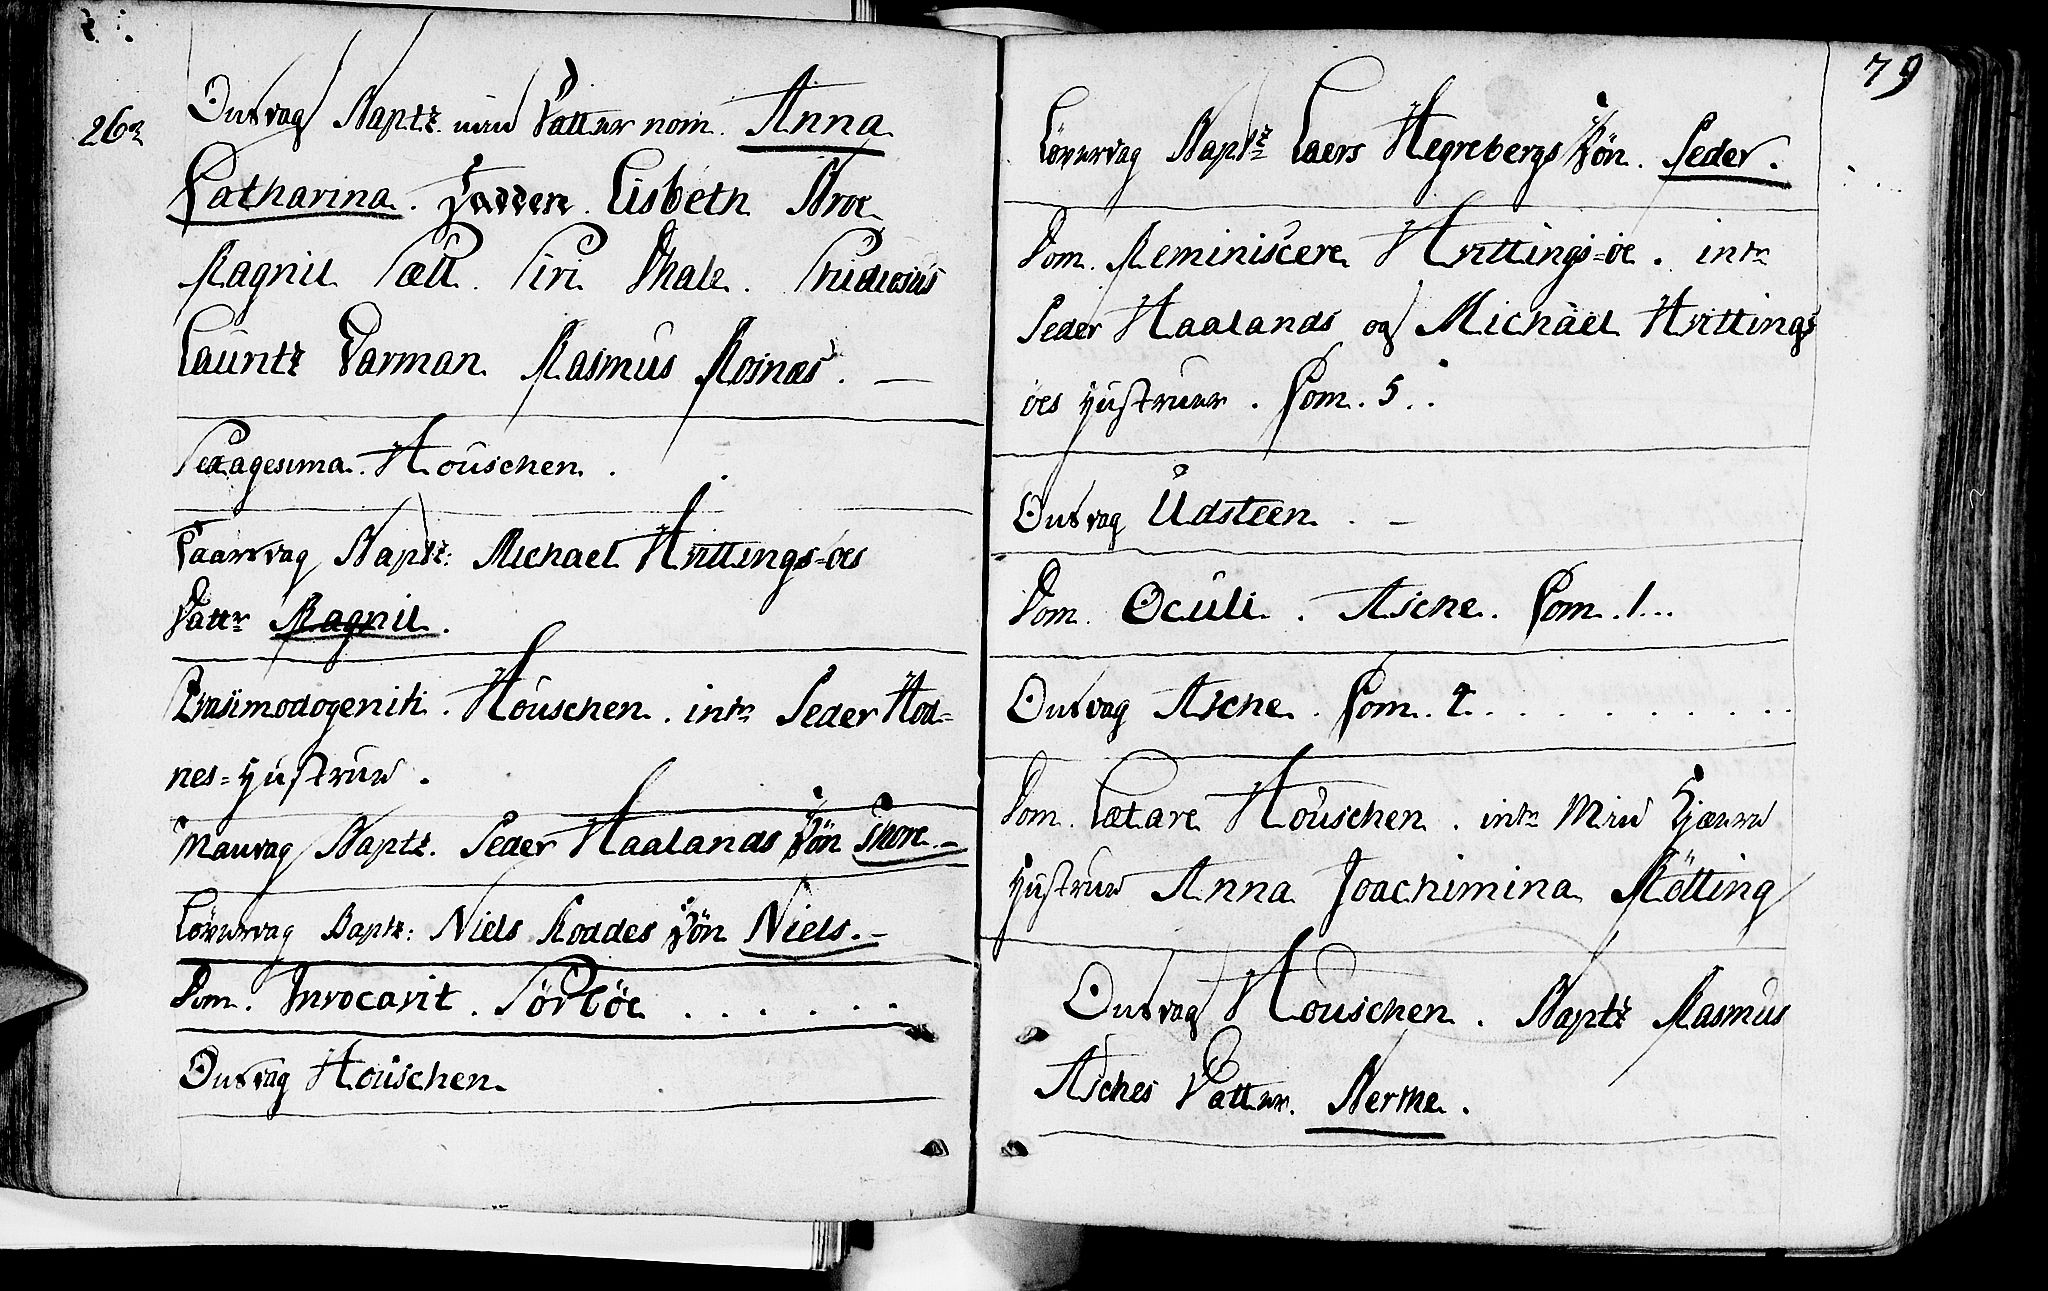 26 Jan
Onsdag Bapt: min Datter nom. Anna
Catharina. Fadder. Lisbeth Broe
Magnil Sæll. Siri Dhale. Studiosus
Lauritz Garman Rasmus Rosnæs. —
Sexagesima. Houschen.
Løverdag Bapt: Michael Hvittings-öes
Dattr Magnil.
Qvasimodogeniti. Houschen. intr Peder Hod=
nes=Hustrue.
Mandag Bapt. Peder Haalands Sön Thore.—
Löverdag Bapt: Niels Roddes Sön Niels.—
Dom. Invocavit. Sörböe . . . . . .
Onsdag Houschen.
79
Löverdag Bapt: Laers Hegrebergs Sön. Peder.
Dom. Reminiscere Hvittings=öe. intr
Peder Haalands og Michäel Hvittings
öes Hustruer. Com. 5..
Onsdag Udsteen. –
Dom. Oculi. Asche. Com. 1...
Onsdag Asche. Com. 4. . . . . . . .
Dom. Lætare Houschen. intr Min Kjære
Hustrue Anna Joachimina Rötting
Onsdag Houschen. Bapt: Rasmus
Asches Datter. Berthe.